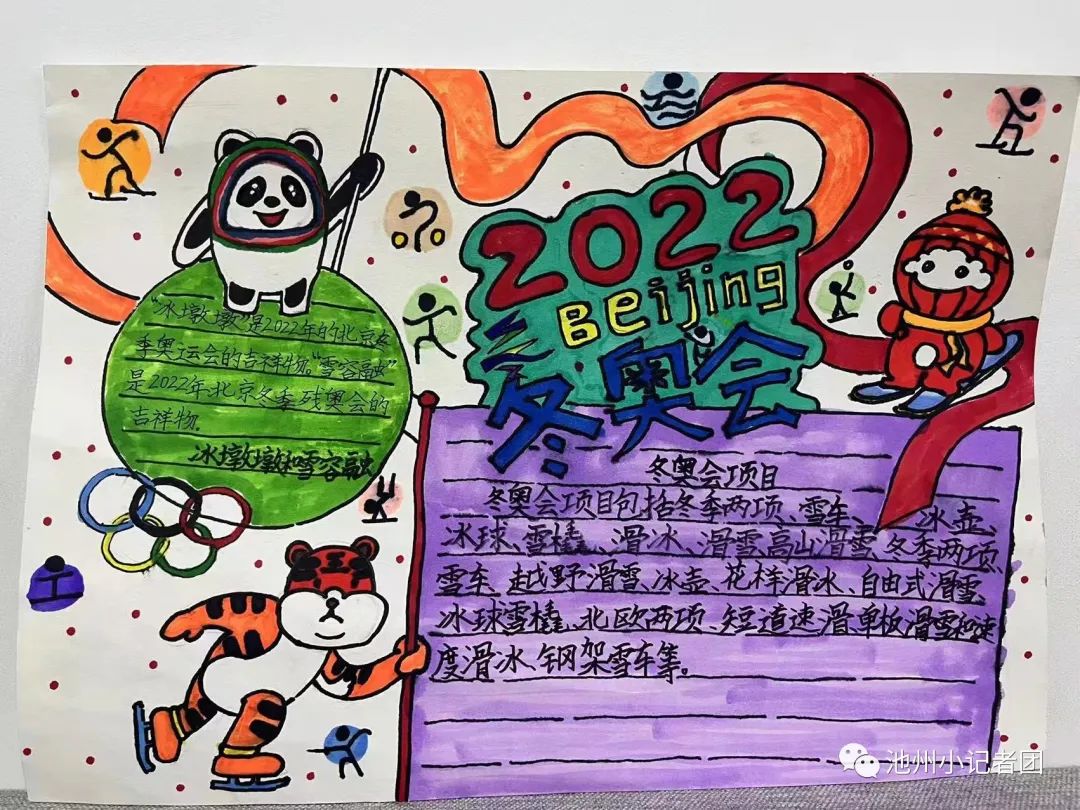 2022
Beijing
冬奥会
“冰墩墩”是2022年的北京冬
季奥运会的吉祥物。“雪容融”
是2022年北京冬季残奥会的
吉祥物。
冰墩墩和雪容融
冬奥会项目
冬奥会项目包括冬季两项、雪车、冰壶、
冰球、雪橇、滑冰、滑雪、高山滑雪、冬季两项、
雪车、越野滑雪、冰壶、花样滑冰、自由式滑雪、
冰球雪橇、北欧两项、短道速滑单板滑雪和速
度滑冰、钢架雪车等。
池州小记者团